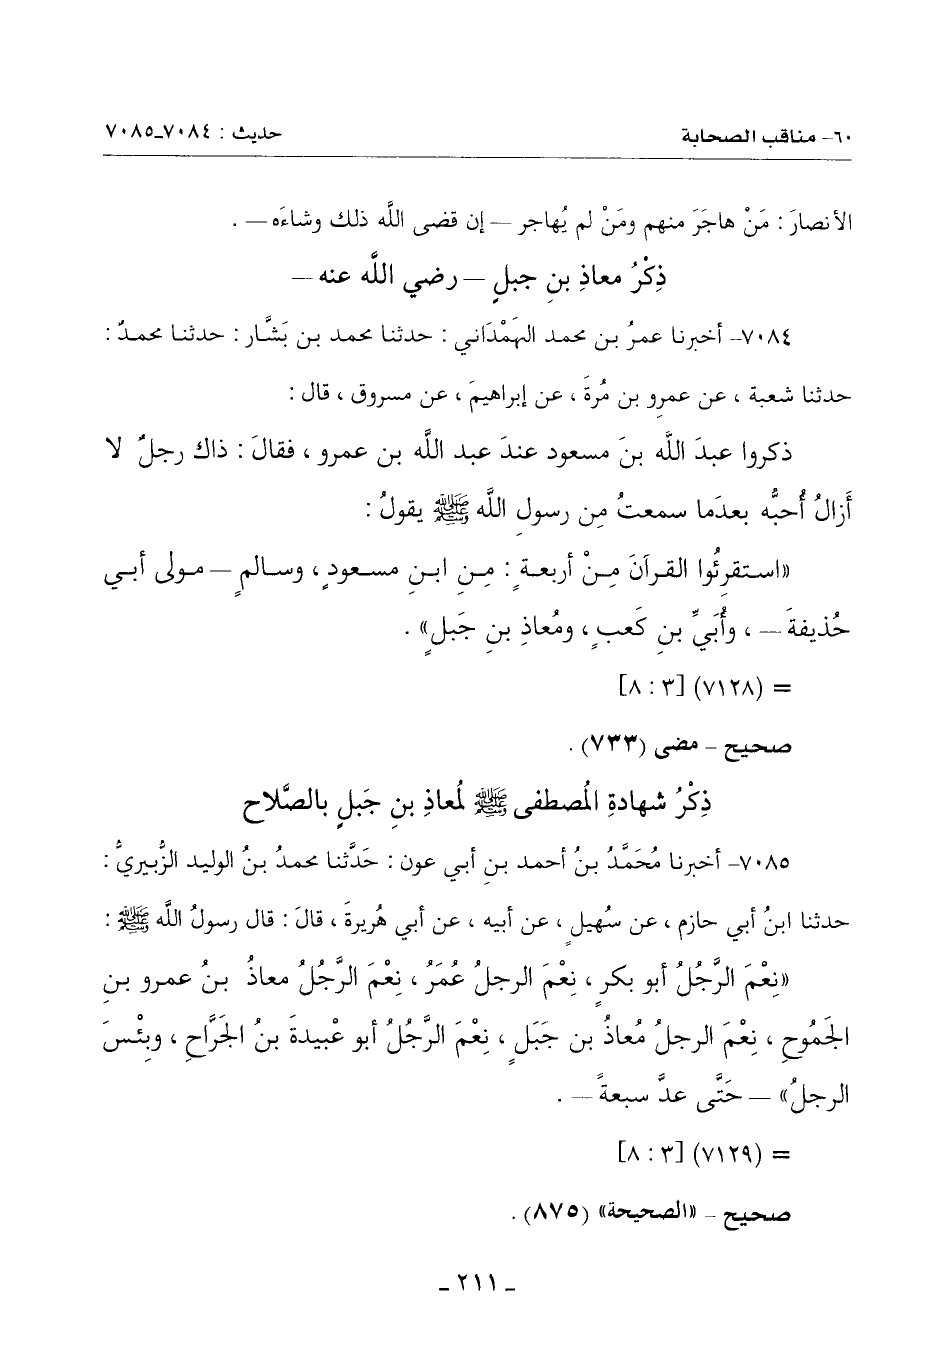 ٦٠- مناقب الصحابة حديث : ٧٠٨٤-٧٠٨٥
الأنصارَ : مَنْ هاجَرَ منهم ومَنْ لم يُهاجر – إن قضى اللَّه ذلك وشاءَه – .
ذِكْرُ معاذِ بنِ جبلٍ – رضي اللَّه عنه –
٧٠٨٤- أخبرنا عمرُ بن محمد الهَمْدَاني : حدثنا محمد بن بَشَّار : حدثنا محمدٌ :
حدثنا شعبة ، عن عمرِو بن مُرةَ ، عن إبراهيمَ ، عن مسروق ، قال :
ذكروا عبدَ اللَّه بنَ مسعود عندَ عبد اللَّه بن عمرو ، فقالَ : ذاك رجلٌ لا
أَزالُ أُحبُّه بعدَما سمعتُ مِن رسولِ اللَّه ﷺ يقولُ :
«استقرئُوا القرآنَ مِنْ أربعةٍ : مِنِ ابنِ مسعودٍ ، وسالمٍ – مولى أبي
حُذيفةَ – ، وأُبَيِّ بنِ كَعبٍ ، ومُعاذِ بنِ جَبلٍ» .
= (٧١٢٨) [٣ : ٨]
صحيح - مضى (٧٣٣) .
ذِكْرُ شهادةِ المُصطفى ﷺ لمُعاذِ بنِ جَبلٍ بالصَّلاح
٧٠٨٥- أخبرنا مُحَمَّدُ بنُ أحمد بنِ أبي عون : حَدَّثنا محمدُ بنُ الوليد الزُّبيريُّ :
حدثنا ابنُ أبي حازم ، عن سُهيلٍ ، عن أبيه ، عن أبي هُريرةَ ، قالَ : قال رسولُ اللَّه ﷺ :
«نِعْمَ الرَّجُلُ أبو بكرٍ ، نِعْمَ الرجلُ عُمَرُ ، نِعْمَ الرَّجُلُ معاذُ بنُ عمرِو بنِ
الجَمُوحِ ، نِعْمَ الرجلُ مُعاذُ بنِ جَبَلٍ ، نِعْمَ الرَّجُلُ أبو عُبيدةَ بنُ الجَرَّاحِ ، وبِئْسَ
الرجلُ» – حَتَّى عدَّ سبعةً – .
= (٧١٢٩) [٣ : ٨]
صحيح - «الصحيحة» (٨٧٥) .
- ٢١١ -